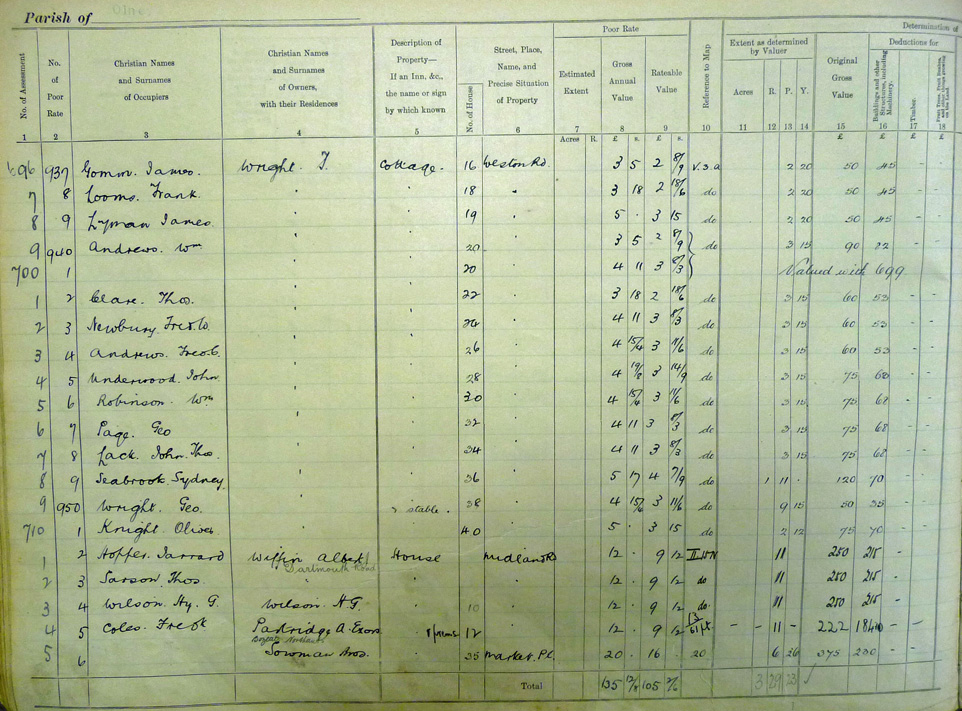 Parish of
Determination of
Poor Rate
Extent as determined by Valuer
Deductions for
No. of Assessment
No. of Poor Rate
Christian Names and Surnames of Occupiers
Christian Names and Surnames of Owners, with their Residences
Description of Property— If an Inn, &c., the name or sign by which known
No. of House
Street, Place, Name, and Precise Situation of Property
Estimated Extent
Gross Annual Value
Rateable Value
Reference to Map
Acres R. P. Y.
Original Gross Value
Buildings and other Structures, including Machinery.
Timber.
Fruit Trees, Fruit Bushes, and other things growing on the Land.
1 2 3 4 5 6 7 8 9 10 11 12 13 14 15 16 17 18
Acres R. £ s. £ s. £ £ £ £
696 937 Gomm. James. Wright. T. Cottage. 16 Weston Rd. 3 5 2 8/9 V.3.a 2 20 50 45
7 8 Looms. Frank. " 18 " 3 18 2 18/6 do 2 20 50 45
8 9 Lyman James " 19 " 5 . 3 15 do 2 20 50 45
9 940 Andrews. Wm " 20 " 3 5 2 8/9 do 3 15 90 22
700 1 " 20 " 4 11 3 8/3 Valued with 699
1 2 Clare. Thos. " 22 " 3 18 2 18/6 do 3 15 60 53 - -
2 3 Newbury. Fred. W. " 24 " 4 11 3 8/3 do 3 15 60 53 - -
3 4 Andrews. Fred. C. " 26 " 4 15/4 3 11/6 do 3 15 60 53 - -
4 5 Underwood. John " 28 " 4 19/8 3 14/9 do 3 15 75 68 - -
5 6 Robinson. Wm " 30 " 4 15/4 3 11/6 do 3 15 75 68 - -
6 7 Page. Geo " 32 " 4 11 3 8/3 do 3 15 75 68 - -
7 8 Lack. John. Thos. " 34 " 4 11 3 8/3 do 3 15 75 68 - -
8 9 Seabrook. Sydney " 36 " 5 17 4 7/9 do 1 11 . 120 70 - -
9 950 Wright. Geo. " stable. 38 " 4 15/6 3 11/6 do 9 15 50 35 - -
710 1 Knight. Oliver " 40 " 5 . 3 15 do 2 12 75 70 - -
1 2 Hopper. Jarrard Wiffin Albert House Midland Rd 12 . 9 12 11 250 215 -
Dartmouth Road
2 3 Sarson. Thos. " " 12 . 9 12 do 11 250 215 -
3 4 Wilson. Hy. G. Wilson. H G. " 10 12 . 9 12 do. 11 250 215 -
4 5 Coles. Fredk Partridge A. Exors " 12 12 . 9 12 - - 11 - 222 184 - -
5 6 Bowman Bros. 35 Market. Pl. 20 . 16 . 20 6 26 375 230 - -
Total 135 105 3 29 23